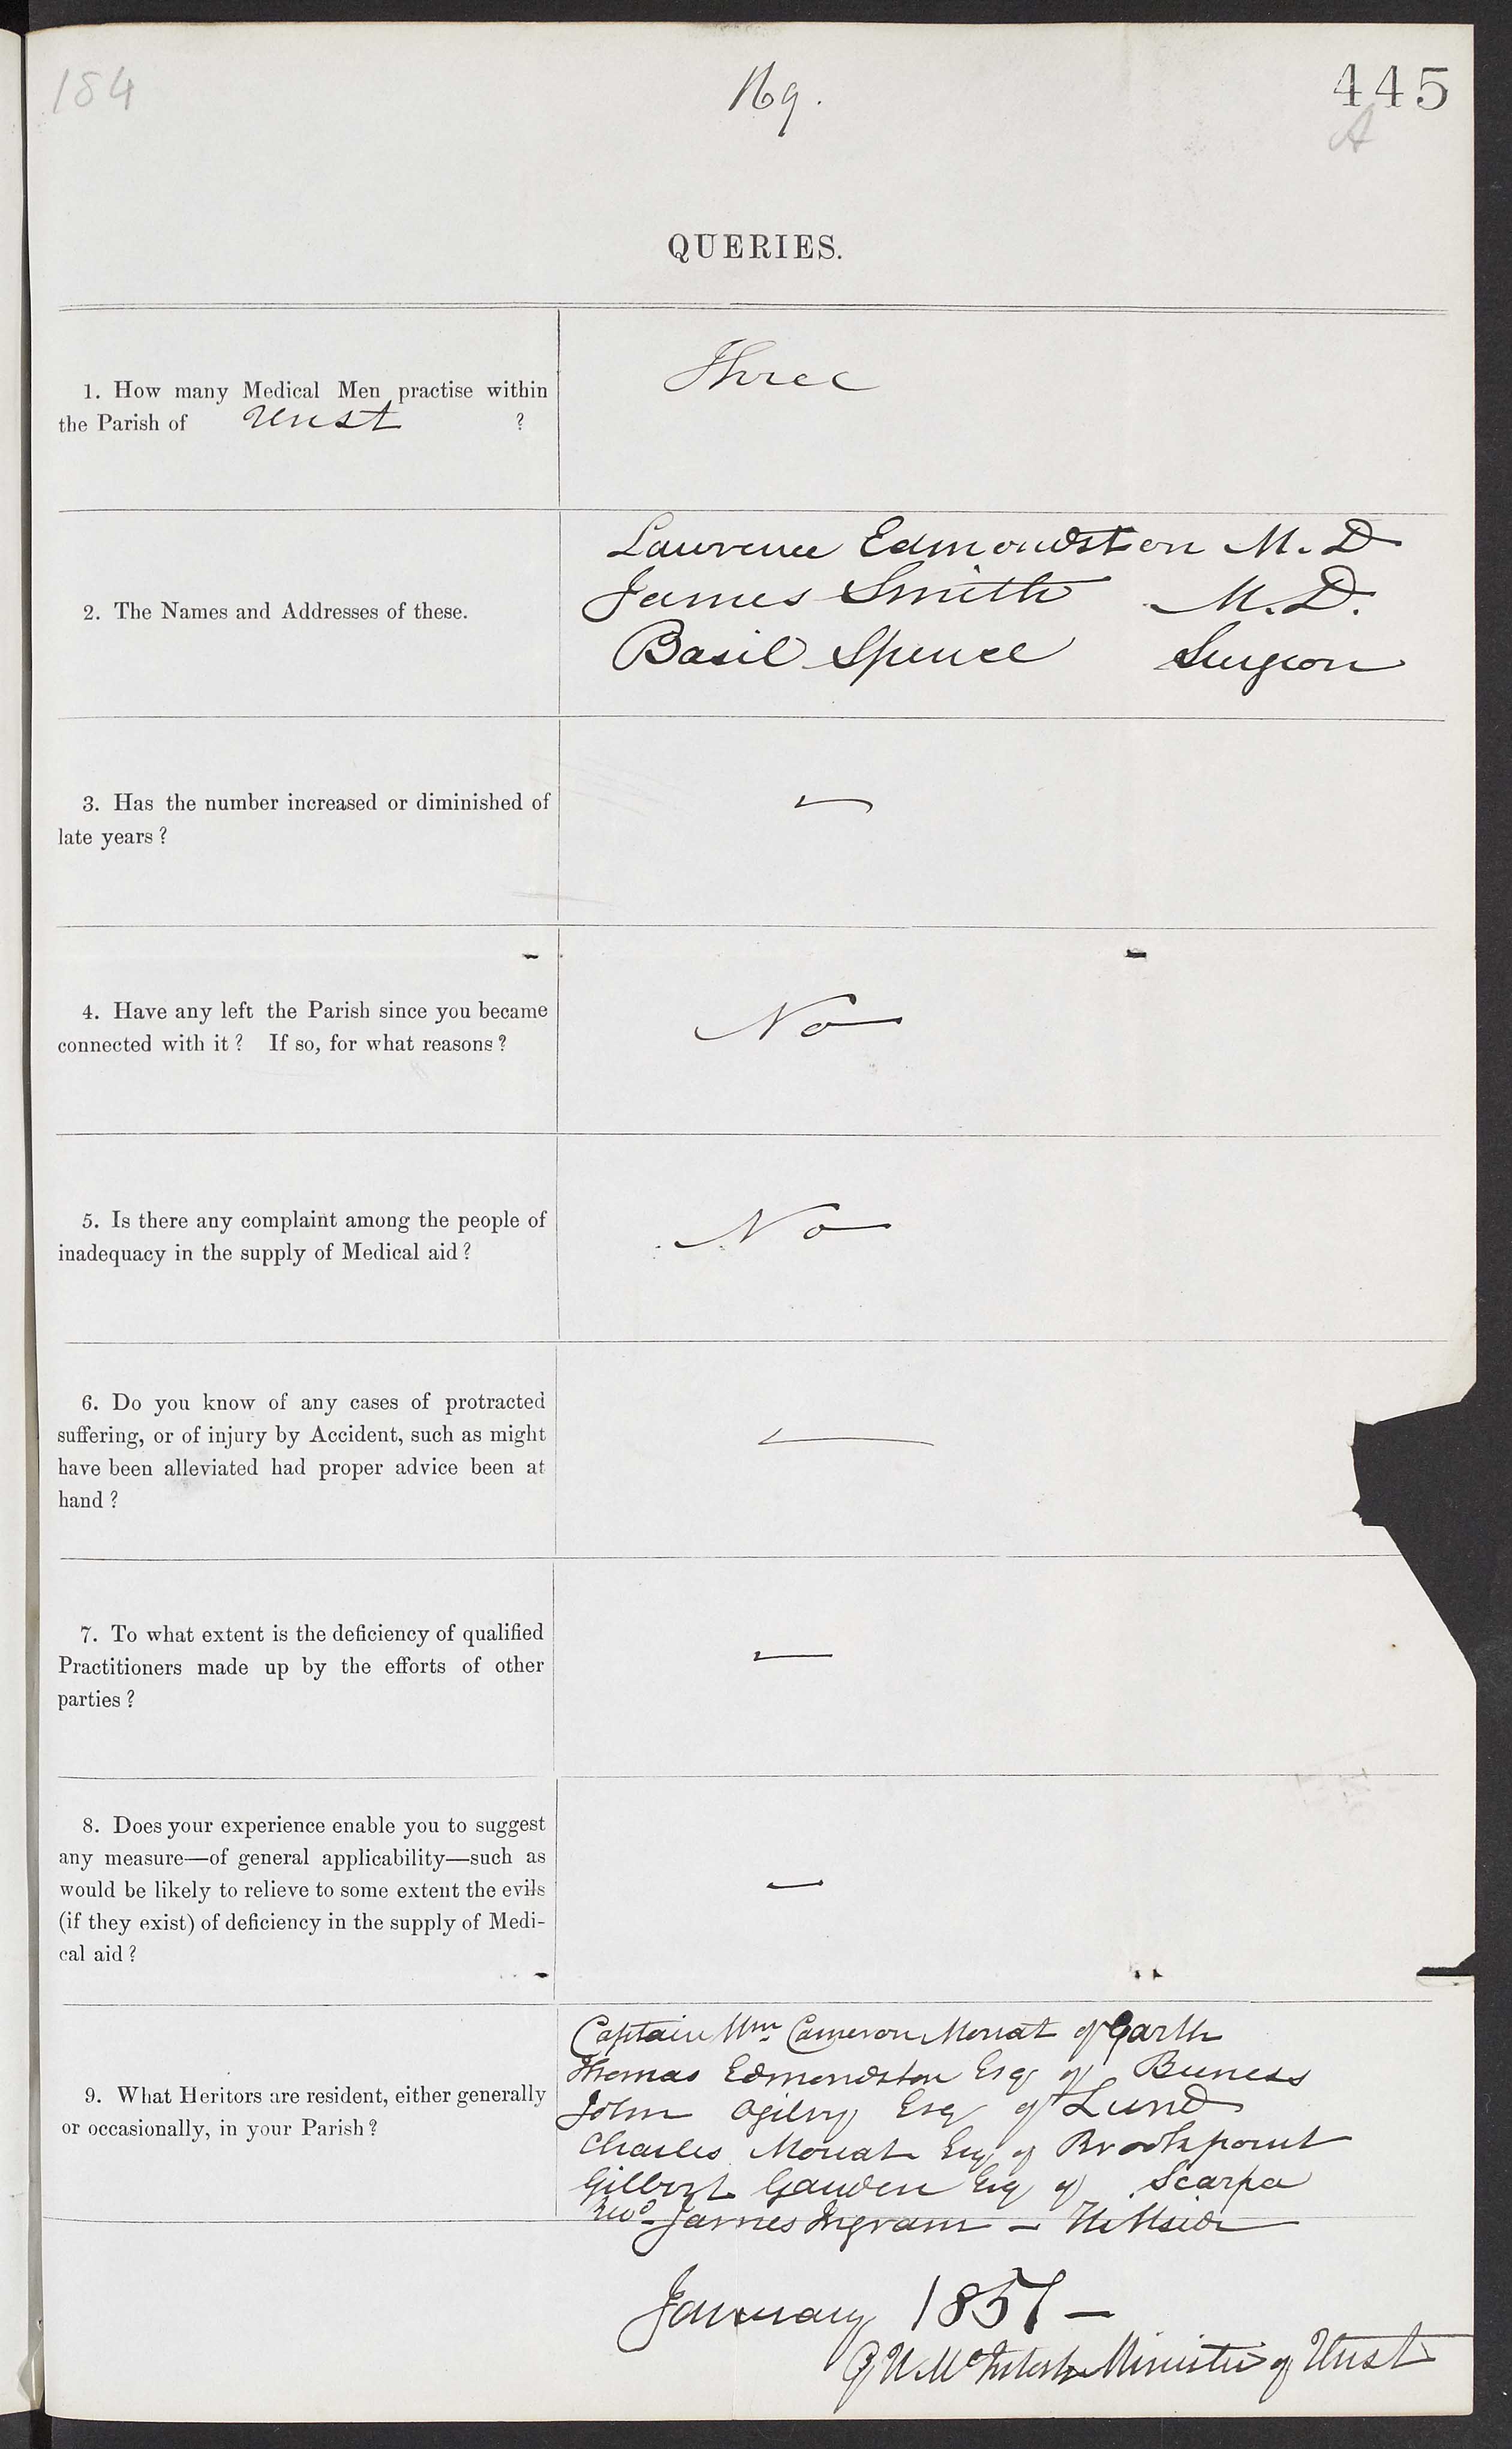 184
169.
445
A
QUERIES.
1. How many Medical Men practise within
the Parish of Unst ?
Three
2. The Names and Addresses of these.
Laurence Edmondston M.D
James Smith M.D.
Basil Spence Surgeon
3. Has the number increased or diminished of
late years?
—
4. Have any left the Parish since you became
connected with it? If so, for what reasons?
No
5. Is there any complaint among the people of
inadequacy in the supply of Medical aid?
No
6. Do you know of any cases of protracted
suffering, or of injury by Accident, such as might
have been alleviated had proper advice been at
hand?
—
7. To what extent is the deficiency of qualified
Practitioners made up by the efforts of other
parties?
—
8. Does your experience enable you to suggest
any measure—of general applicability—such as
would be likely to relieve to some extent the evils
(if they exist) of deficiency in the supply of Medi-
cal aid?
—
9. What Heritors are resident, either generally
or occasionally, in your Parish?
Captain Wm Cameron Mouat of Garth
Thomas Edmondston Esq of Buness
John Ogilvy Esq of Lund
Charles Mouat Esq of Brookpoint
Gilbert Gauden Esq of Scarpa
Revd James Ingram – Hillside
January 1851 –
McIntosh Minister of Unst